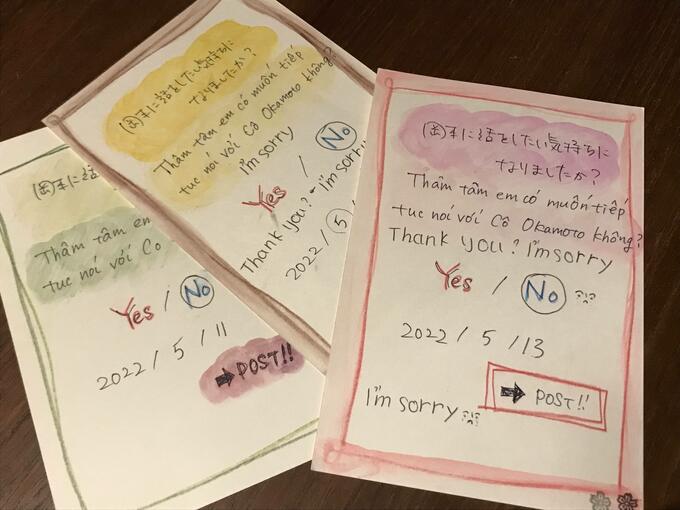 岡本に話をしたい気持ちに
なりましたか?
Thâm tâm em có muốn tiếp
tuc nói với Cô Okamoto không?
Thank you? I'm sorry
Yes / No
2022 / 5 / 13
➡ POST!!
I'm sorry
岡本に話をしたい気持ちに
なりましたか?
Thâm tâm em có muốn tiếp
tuc nói với Cô Okamoto không?
I'm sorry
Yes / No
Thank you? I'm sorry
2022 / 5 /
岡本に話
Thâm tâm em
tuc nói với Cô
Yes / No
2022 / 5 / 11
➡ POST!!